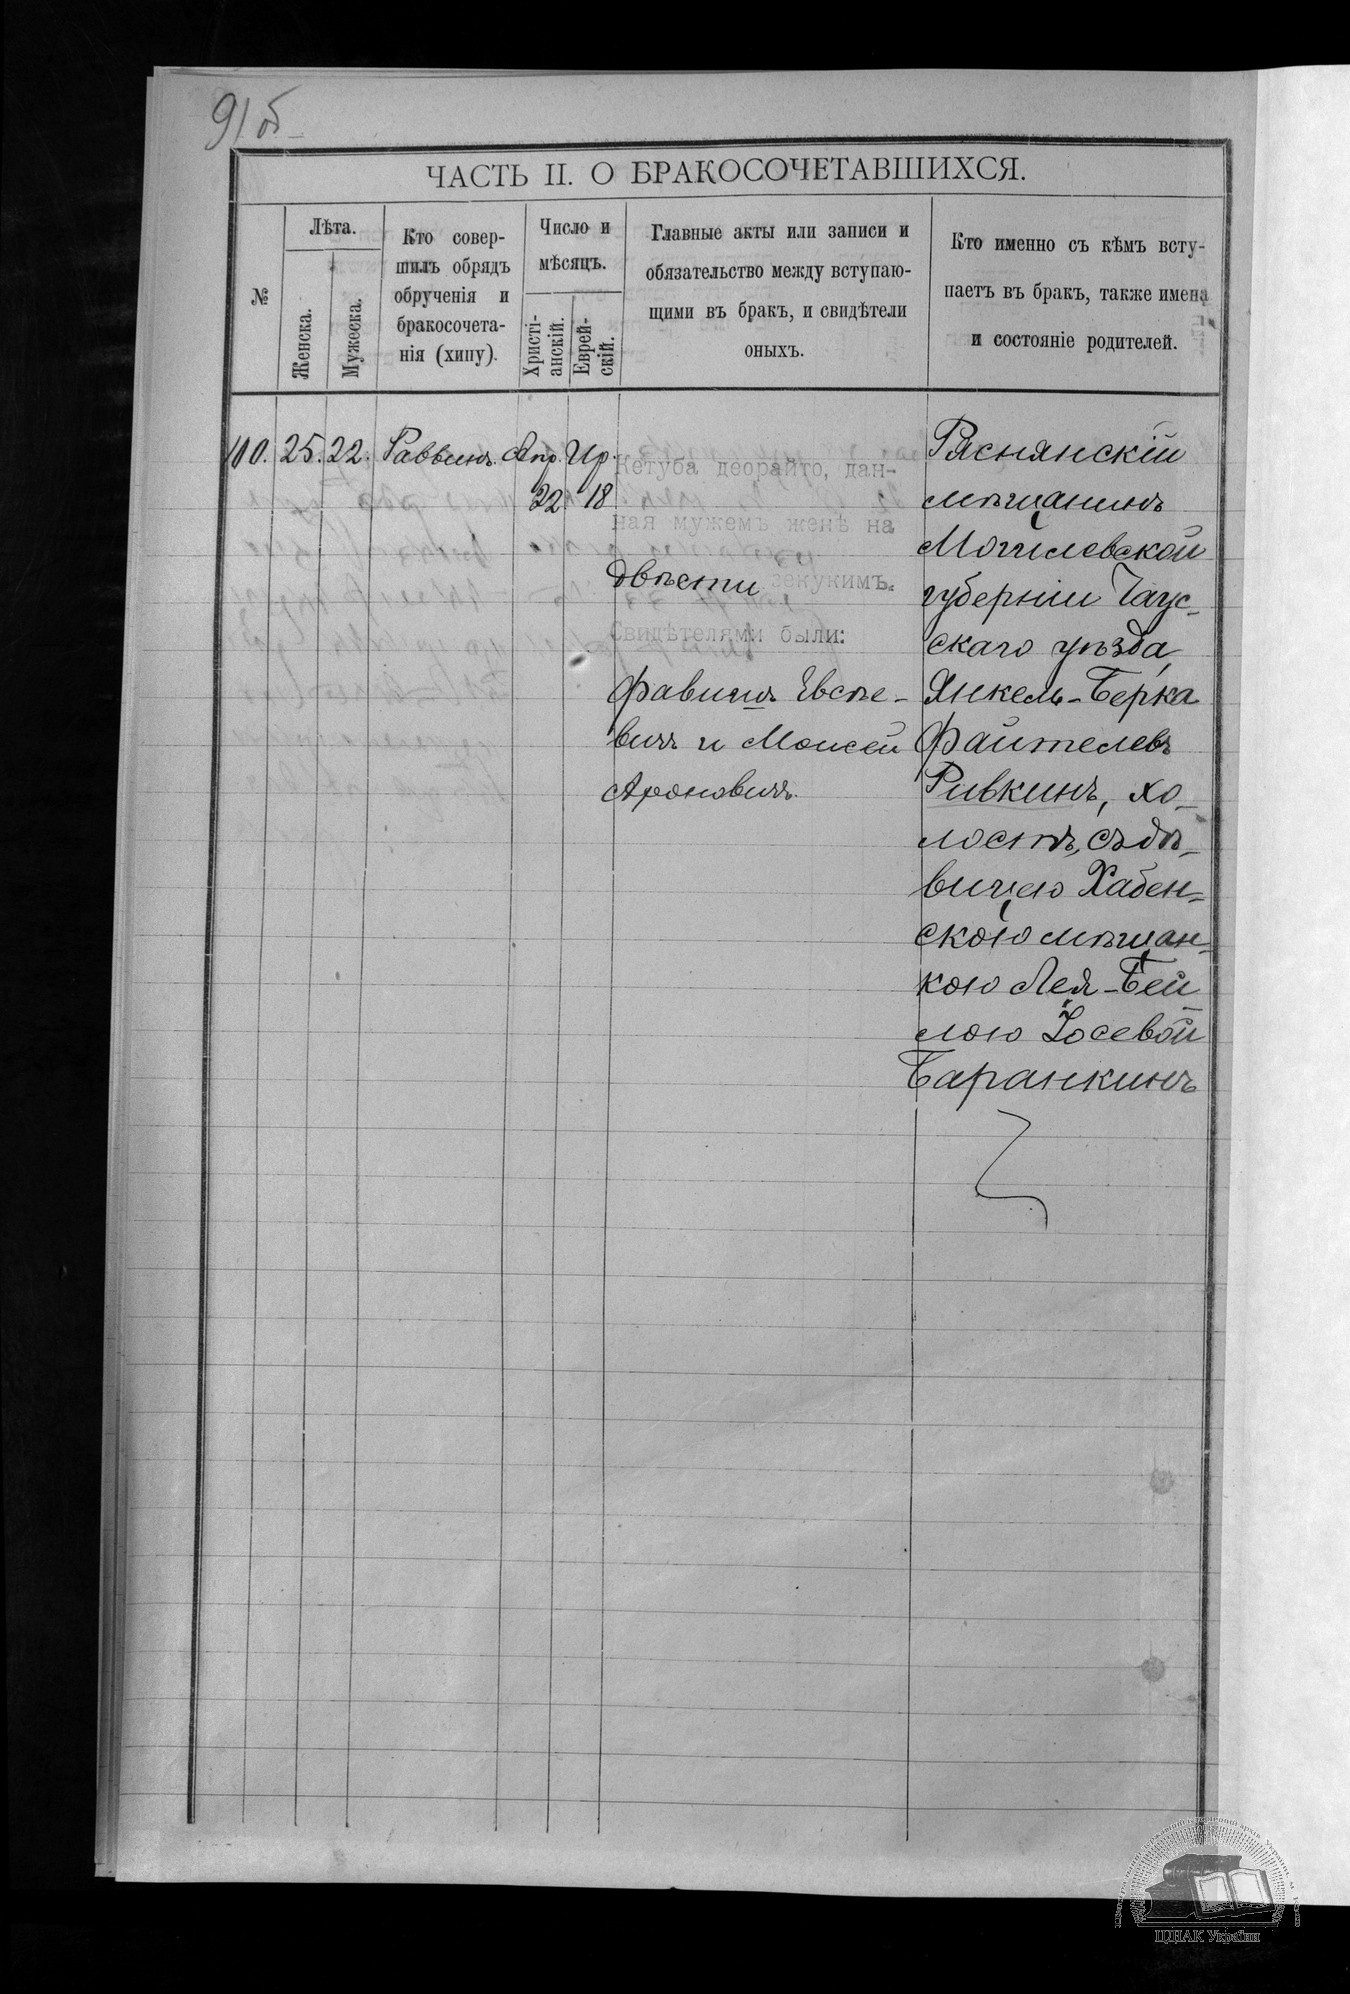 91 об
ЧАСТЬ II. О БРАКОСОЧЕТАВШИХСЯ.
№
Лѣта.
Женска.
Мужеска.
Кто совер-
шилъ обрядъ
обрученія и
бракосочета-
нія (хипу).
Число и
мѣсяцъ.
Христі-
анскій.
Еврей-
скій.
Главные акты или записи и
обязательство между вступаю-
щими въ бракъ, и свидѣтели
оныхъ.
Кто именно съ кѣмъ всту-
паетъ въ бракъ, также имена
и состояніе родителей.
100. 25. 22. Раввинъ. Апр. Ир.
22. 18
Кетуба деорайто, дан-
ная мужемъ женѣ на
двѣсти зекукимъ.
Свидѣтелями были:
Фавишъ Евсѣе-
вичъ и Моисей
Ароновичъ.
Ряснянскій
мѣщанинъ
Могилевской
губерніи Чаус-
скаго уѣзда,
Янкель-Берка
Файтелевъ
Ривкинъ, хо-
лостъ, съ дѣ-
вицею Хабен-
скою мѣщан-
кою Лея-Бей
лою Іосевой
Баранкинъ
ЦДІАК України